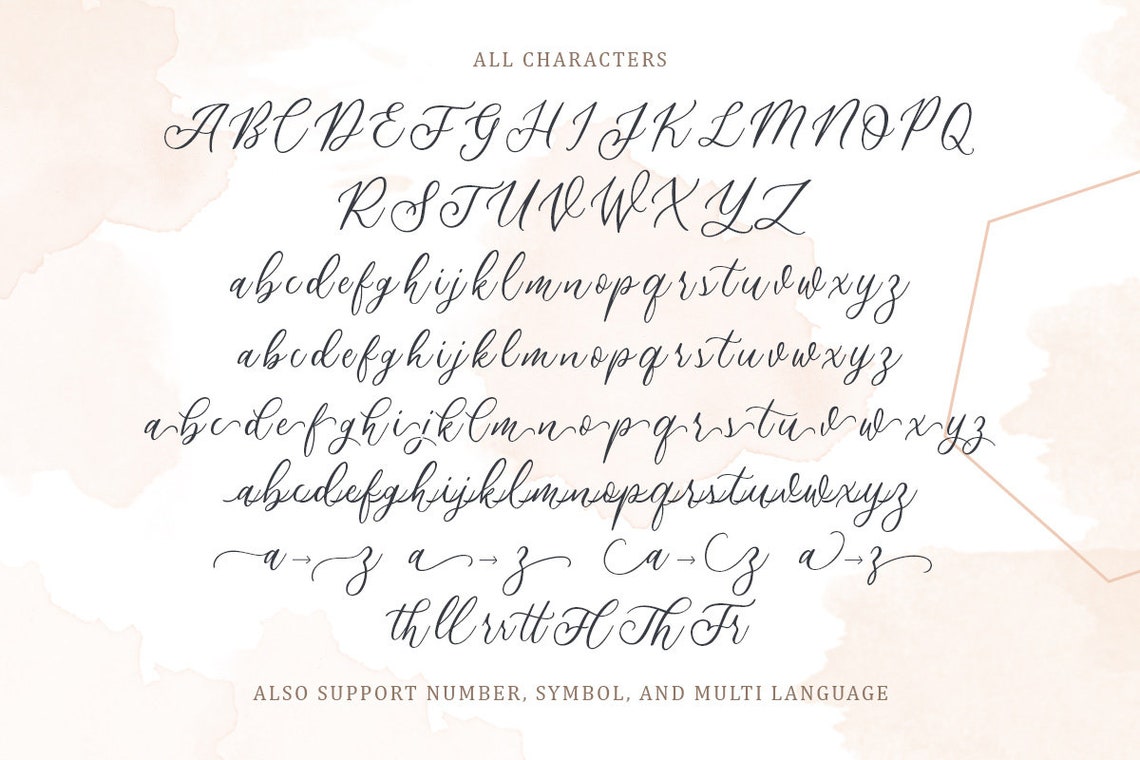 ALL CHARACTERS
A B C D E F G H I J K L M N O P Q
R S T U V W X Y Z
a b c d e f g h i j k l m n o p q r s t u v w x y z
a b c d e f g h i j k l m n o p q r s t u v w x y z
a b c d e f g h i j k l m n o p q r s t u v w x y z
abcdefghijklmnopqrstuvwxyz
a → z a → z a → z a → z
th ll rr tt Fl Th Fr
ALSO SUPPORT NUMBER, SYMBOL, AND MULTI LANGUAGE